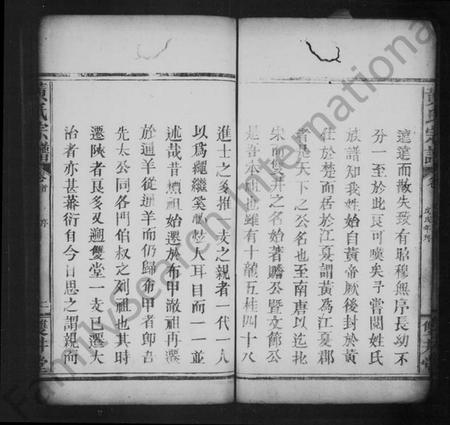 遠遠而散失致有昭穆無序長幼不
分一至於此良可嘆矣予嘗閱姓氏
族譜知我姓始自黃帝厥後封於黃
在於楚而居於江夏謂黃為江夏郡
者是天下之公名也至南唐以迄北
宋而雙井之名始著贍公暨文節公
是吾本也雖有十龍五桂四十八
黃氏宗譜
卷首
戊戌年序
雙井堂
進士之多推一支之親者一代一人
以為繩繼奚世人耳目而一一並
述哉昔煩祖始遷於布甲澈祖再遷
於迴羊從迴羊而仍歸布甲者卽吾
先太公同各門伯叔之列祖也其時
遷陝者良多又遡雙堂一支已遷大
治者亦甚蕃衍自今日思之謂親而
黃氏宗譜
卷首
序
二
雙井堂
FamilySearch International